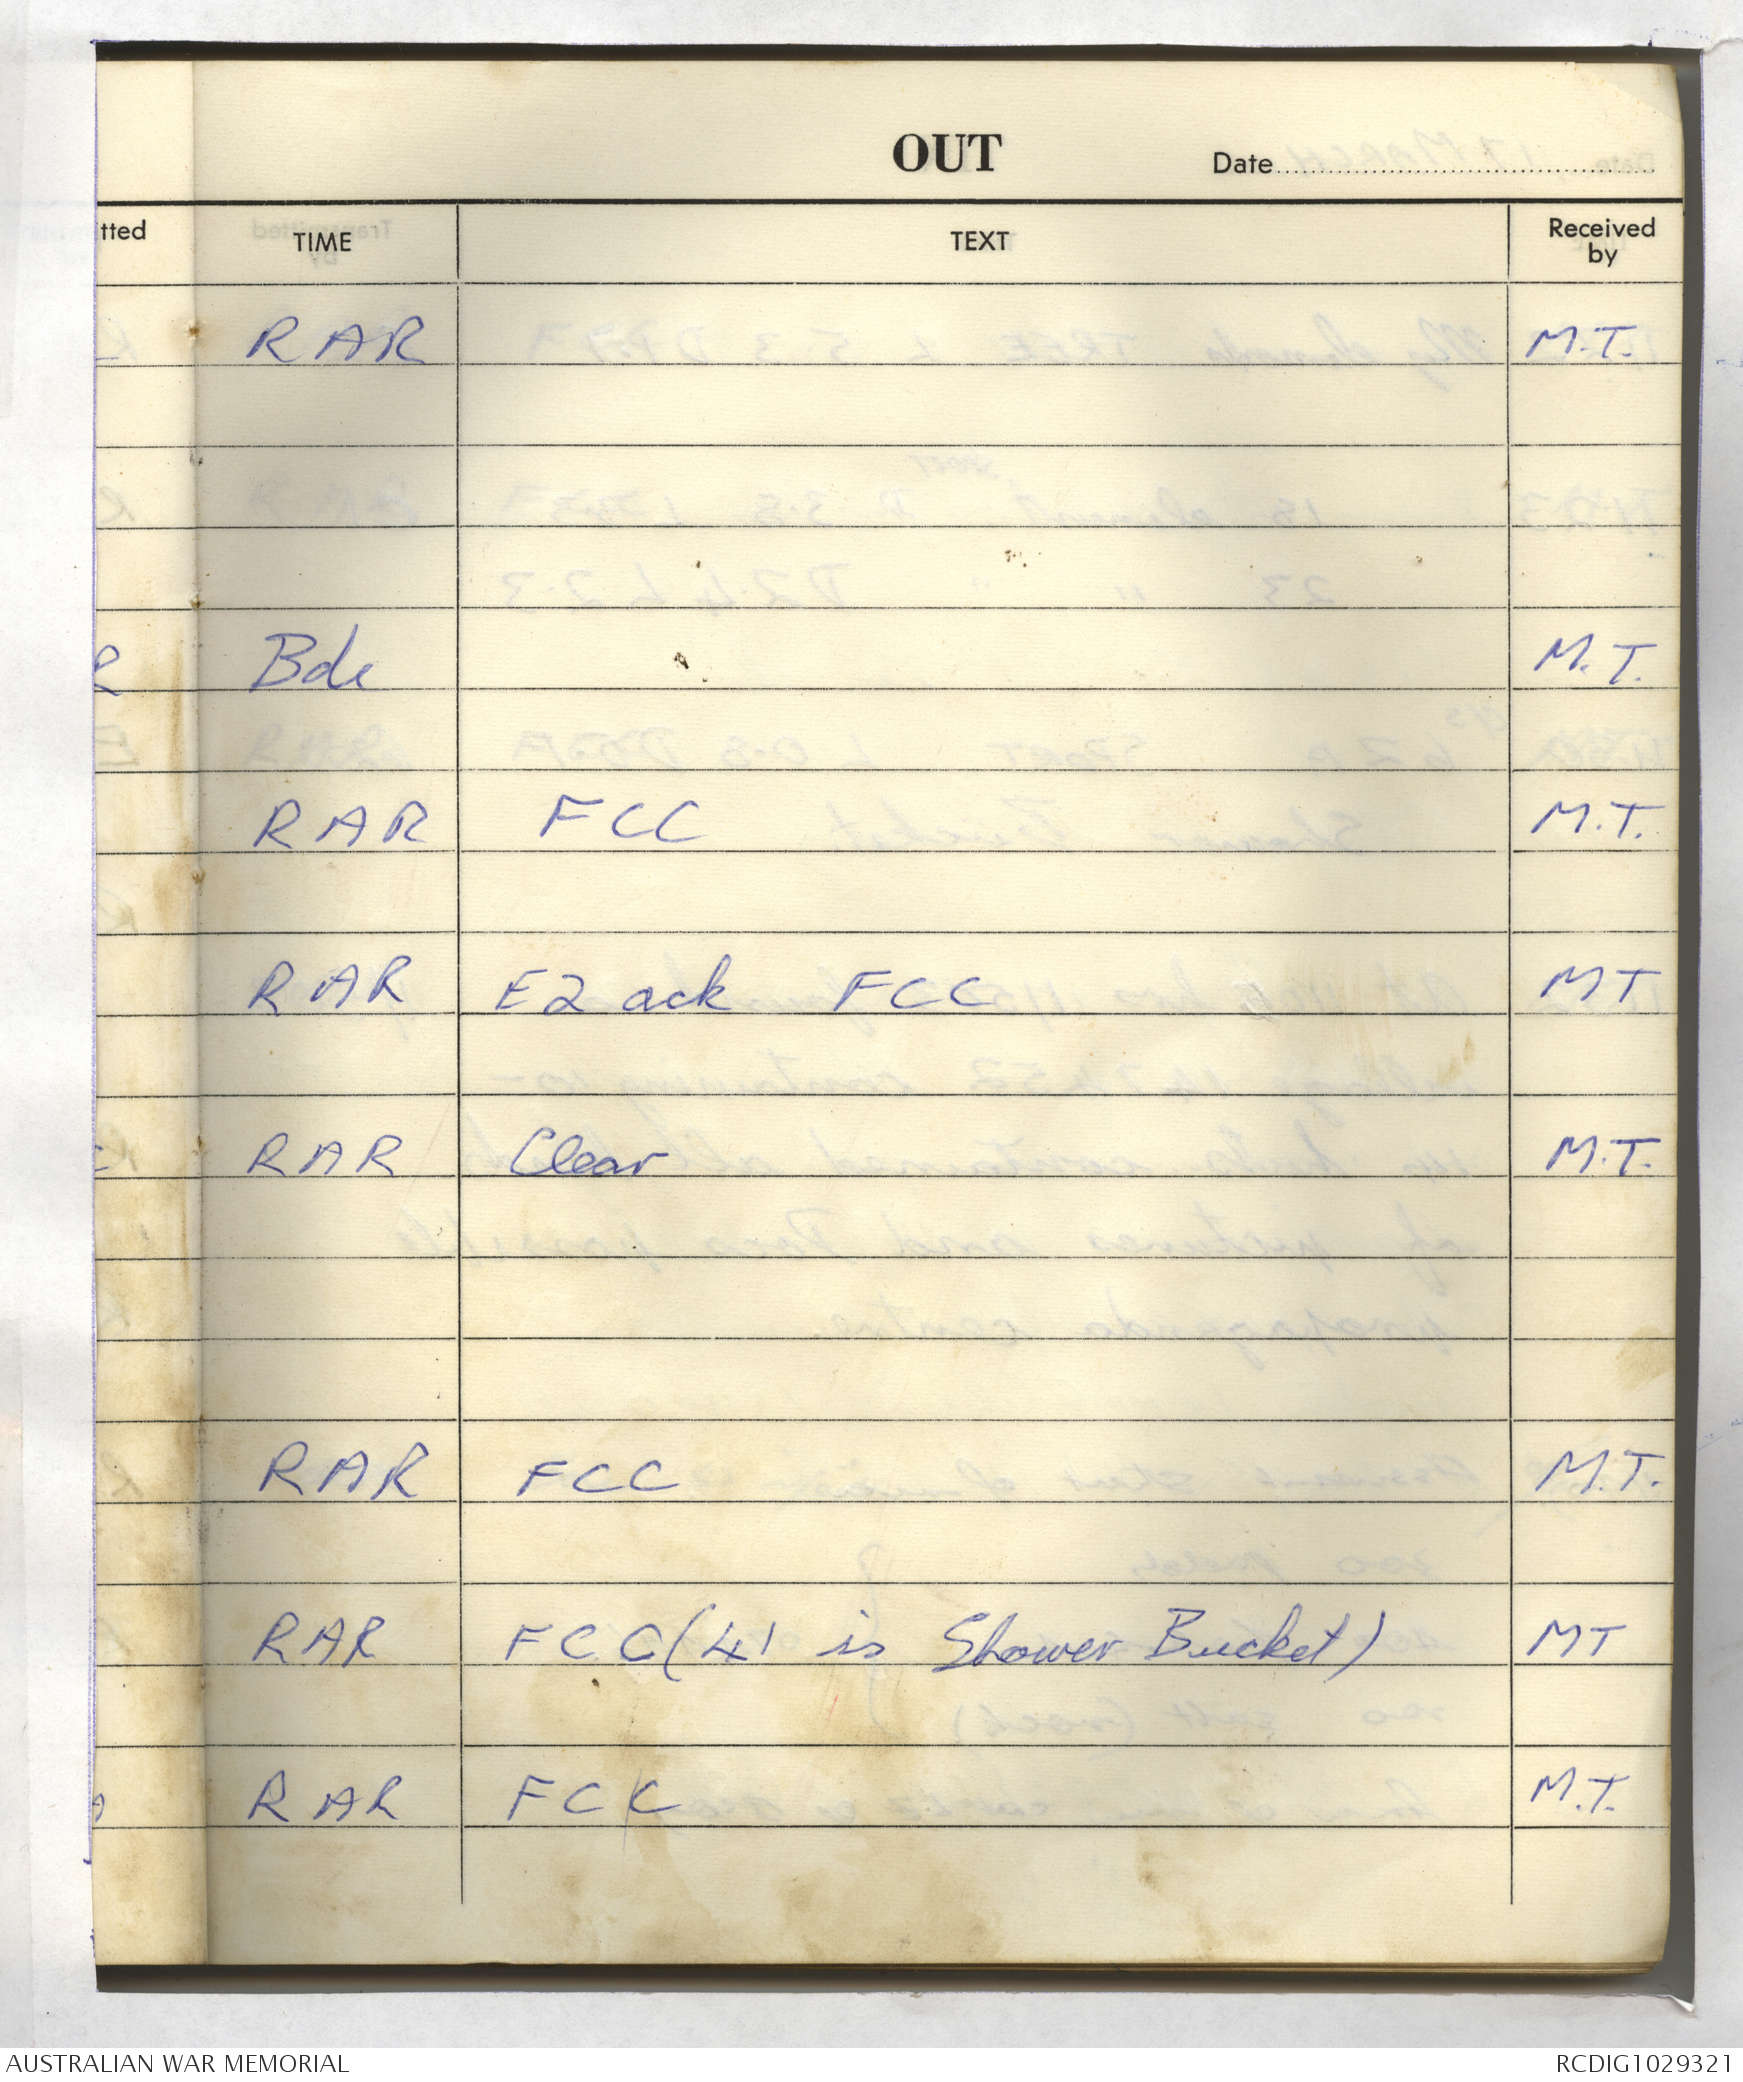 OUT
Date
tted TIME TEXT Received by
RAR M.T.
R Bde M.T.
RAR FCC M.T.
RAR E2 ack FCC MT
RAR Clear M.T.
RAR FCC M.T.
RAR FCC (41 is Shower Bucket) MT
RAR FCC M.T.
AUSTRALIAN WAR MEMORIAL RCDIG1029321